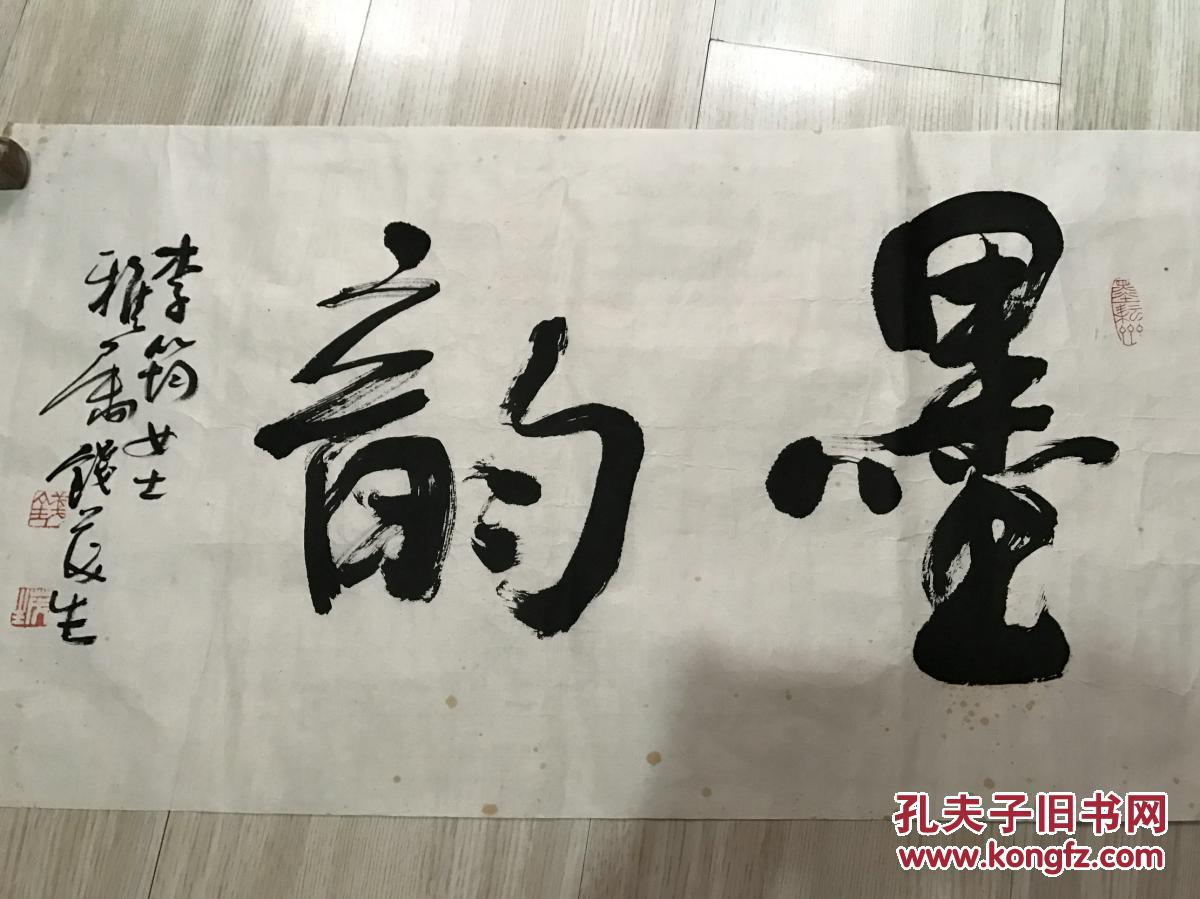 墨韵
李筠女士
雅属錢茂生
孔夫子旧书网
www.kongfz.com